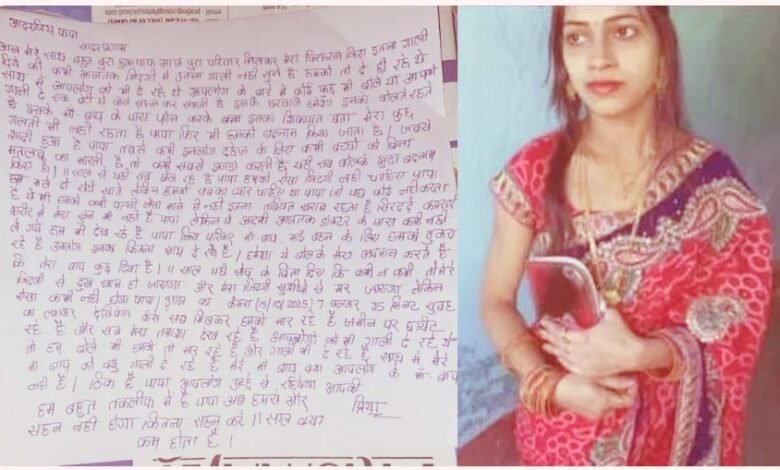 आदरणिय पापा
सादर प्रणाम
आज मेरे साथ बहुत बुरा हुआ पापा आज पुरा परिवार मिलकर मेरा किया इतना गाली
दिये की कभी आजतक जिंदगी में इतना गाली नही सुने है हमको तो दे ही रहे थे
साथ में आपलोग को भी दे रहे थे आपलोग के बारे में कोई कुछ भी बोले या आपको
गाली दे एक बेटी ये कैसे सहन कर सकती है इनके घरवाले हमेशा इनको बोलते रहते
है इसके माँ-बाप के पास फोन करके इसका शिकायत बता मेरा कुछ
गलती भी नही रहता है पापा फिर भी हमको बदनाम किया जाता है। जबसे
शादी हुआ है पापा तबसे कभी इनलोग दहेज के लिए कभी बच्चो को बिना
मतलबके का मारती है, तो कभी सबसे झगड़ा करती है यही सब बोलके झुठा बदनाम
किए है। 11 साल से यही सब झेल रहे है पापा हमको ऐसा जिंदगी नही चाहिए पापा
हम भले दो रोटी खाते लेकिन हमको सबका प्यार चाहिए था पापा जो यहाँ कोई नही करता
है ये भी हमको कभी पत्नी जैसा माने है नही इतना तबियत खराब रहता है सिरदर्द कमरदर्द
शरीर में मेरा खुन भी नही है पापा लेकिन ये आदमी आजतक डॉक्टर के पास कभी नही
ले गये हम भी देख रहे है पापा जिस परिवार माँ बाप, भाई बहन के लिए हमको ठुकरा
रहे है उनलोग इनका कितना साथ दे रहे है। हमेशा ये बोलके मेरा अपमान करते है
कि तेरा बाप कुछ दिया है। 11 साल यही सोच के बिता दिए कि कभी न कभी तो मेरे
जिंदगी से दुख खत्म हो जाएगा और मेरा जिंदगी खुशीयो से भर जाएगा लेकिन
ऐसा कभी नही होगा पापा। का कैमरा (15/10/2025) 7 बजकर 35 मिनट सुबह
का लगाकर देखिएगा कैसे सब मिलकर हमको मार रहे है जमीन पर घसीट
रहे है और सब मेरा तमाशा देख रहे है आपलोगो को भी गाली दे रहे थे
तो हम बोले भी हमको तो मार रहे है और गाली भी दे रहे है साथ में मेरे
माँ-बाप को क्यु गाली दे रहे है मेरे माँ बाप क्या आपलोग के माँ-बाप
नही है। ठिक है पापा आपलोग अच्छे से रहिएगा आपकी
प्रिया
हम बहुत तकलीफ में है पापा अब हमसे और
सहन नही होगा कितना सहन करे 11 साल क्या
कम होता है।